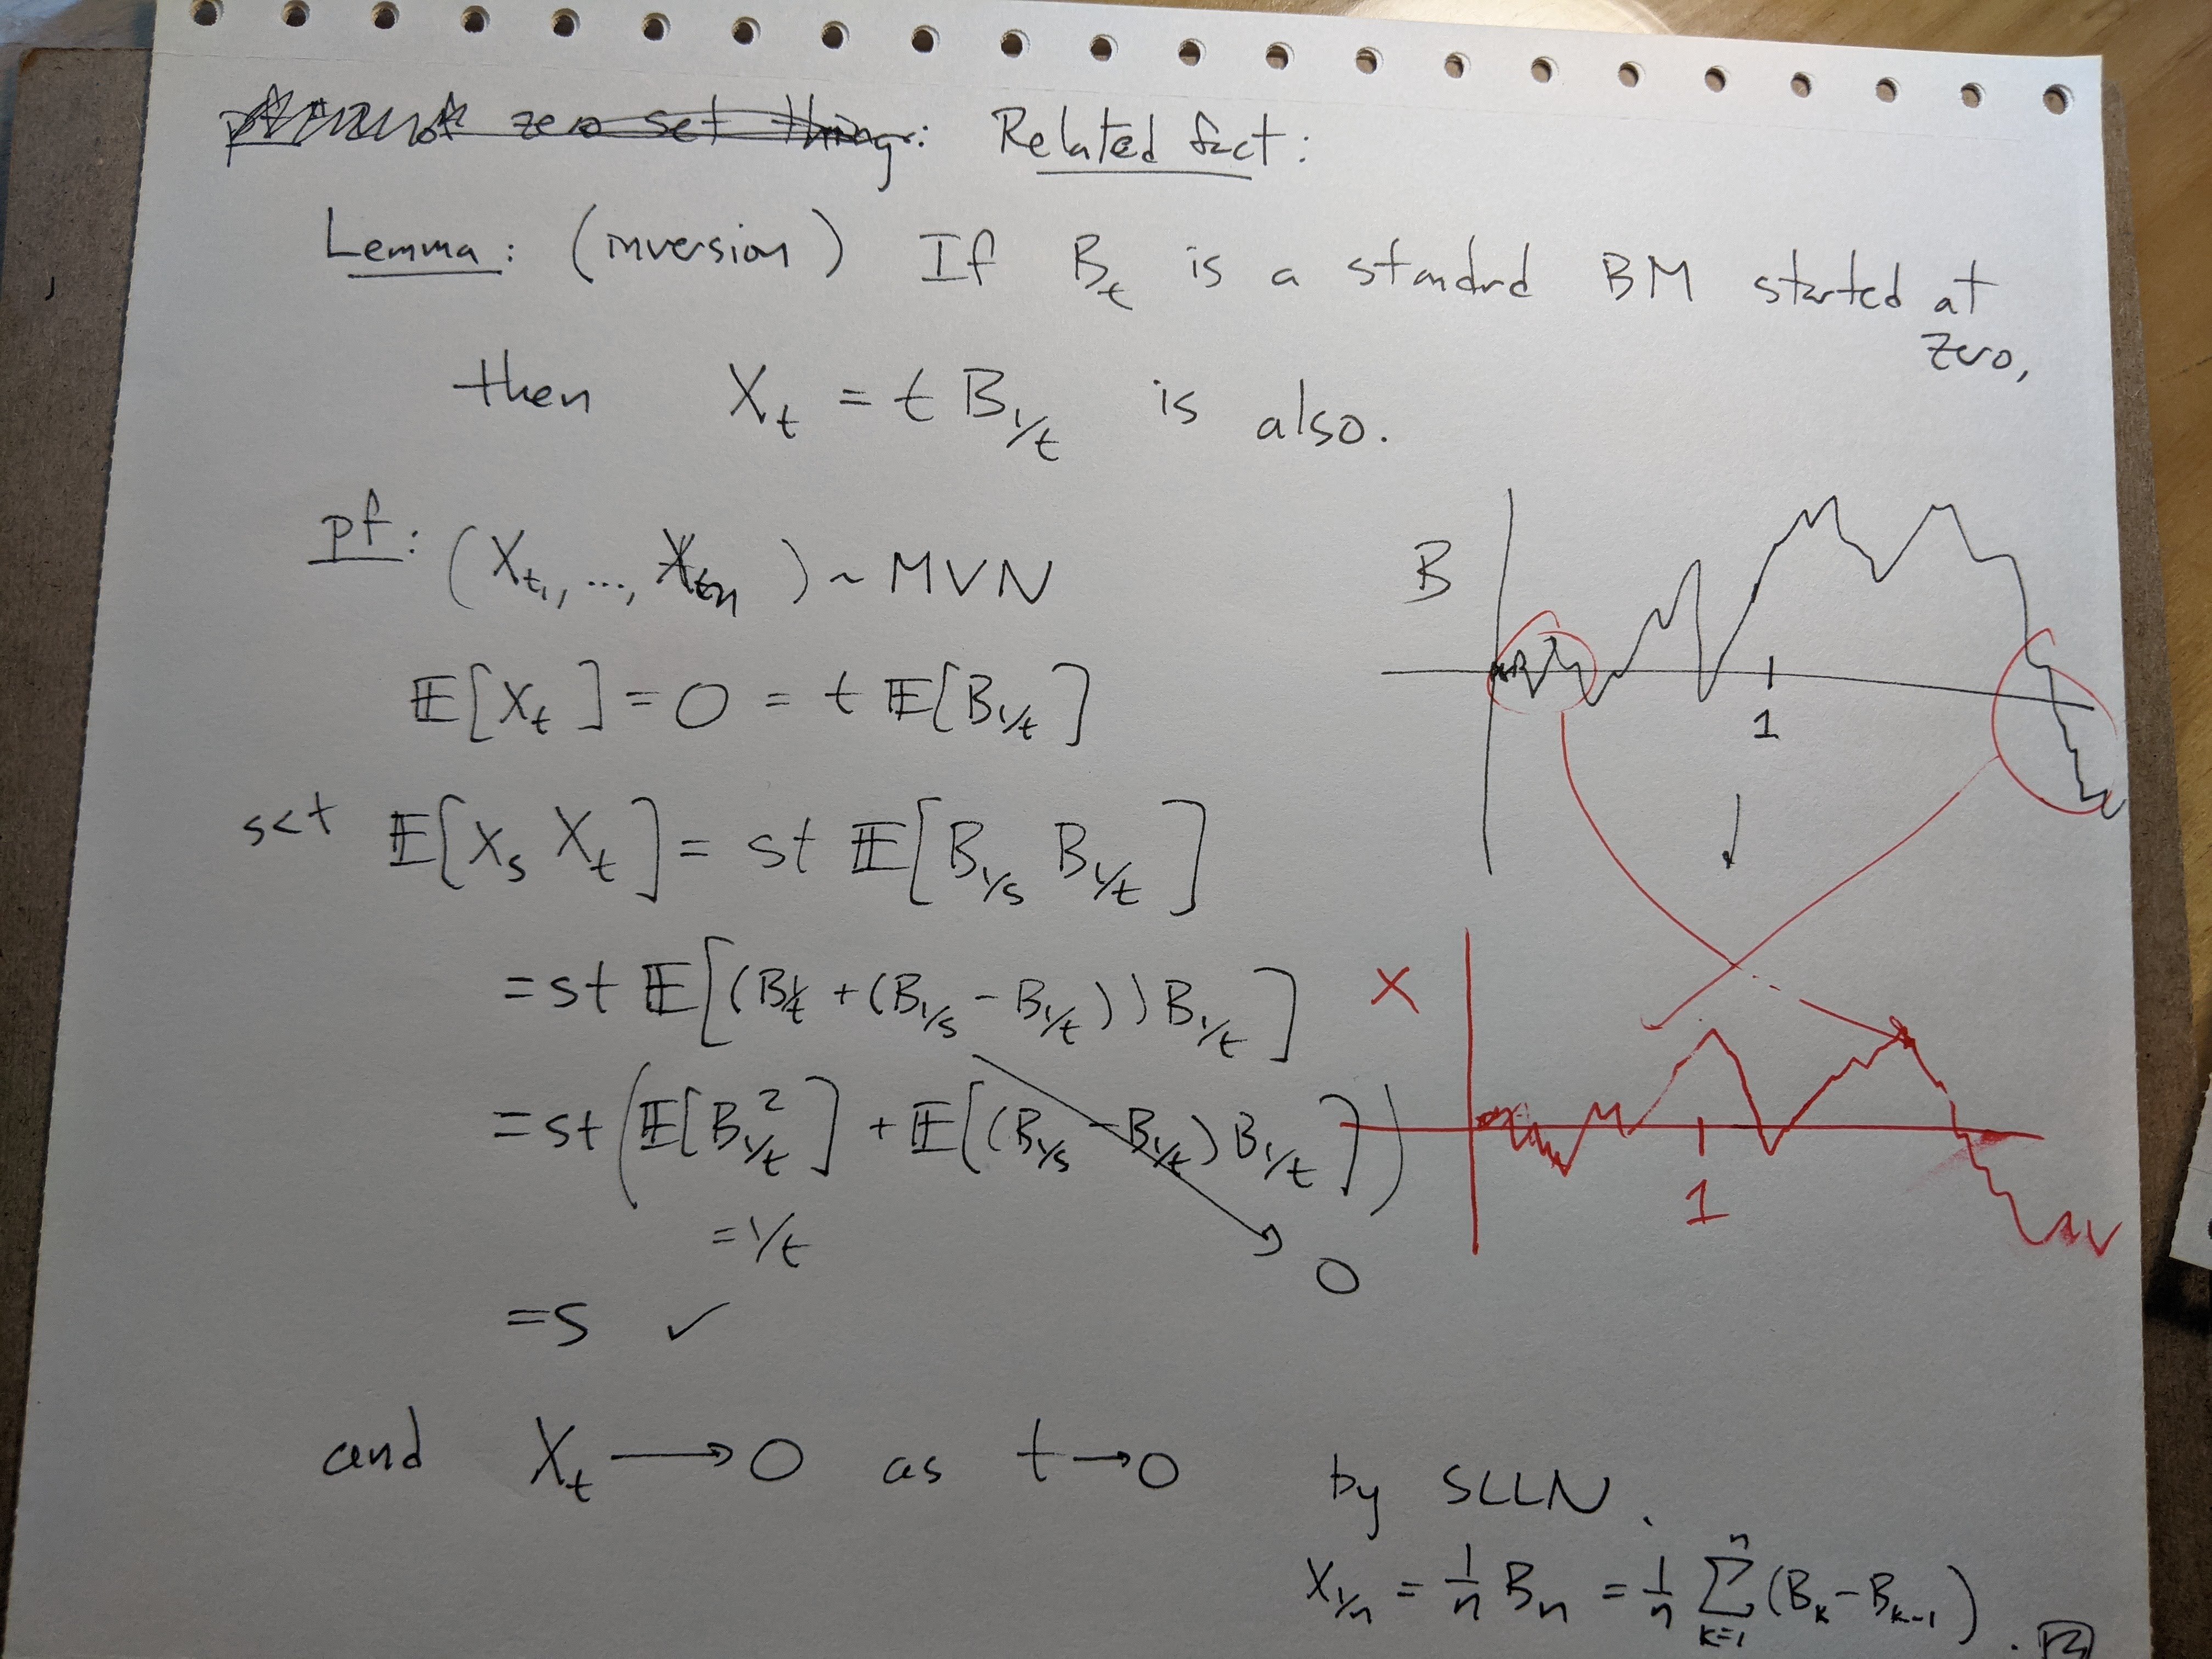 zero set thing: Related fact:
Lemma: (inversion) If B_t is a standard BM started at zero,
then X_t = t B_{1/t} is also.
pf: (X_{t_1}, ..., X_{t_n}) ~ MVN
𝔼[X_t] = 0 = t 𝔼[B_{1/t}]
s<t 𝔼[X_s X_t] = st 𝔼[B_{1/s} B_{1/t}]
= st 𝔼[(B_{1/t} + (B_{1/s} - B_{1/t})) B_{1/t}]
= st (𝔼[B_{1/t}^2] + 𝔼[(B_{1/s} - B_{1/t}) B_{1/t}])
= 1/t
0
= s ✓
and X_t → 0 as t → 0 by SLLN.
X_{1/n} = 1/n B_n = 1/n ∑_{k=1}^n (B_k - B_{k-1}).
B
1
X
1